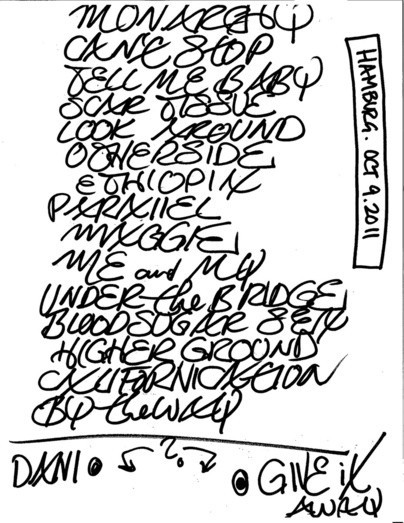 MONARCHY
CAN'T STOP
TELL ME BABY
SCAR TISSUE
LOOK AROUND
OTHERSIDE
ETHIOPIA
PARALLEL
MAGGIE
ME and MY
UNDER the BRIDGE
BLOOD SUGAR SEX
HIGHER GROUND
CALIFORNICATION
BY the WAY
DANI ?. GIVE it
AWAY
HAMBURG. OCT 9.2011